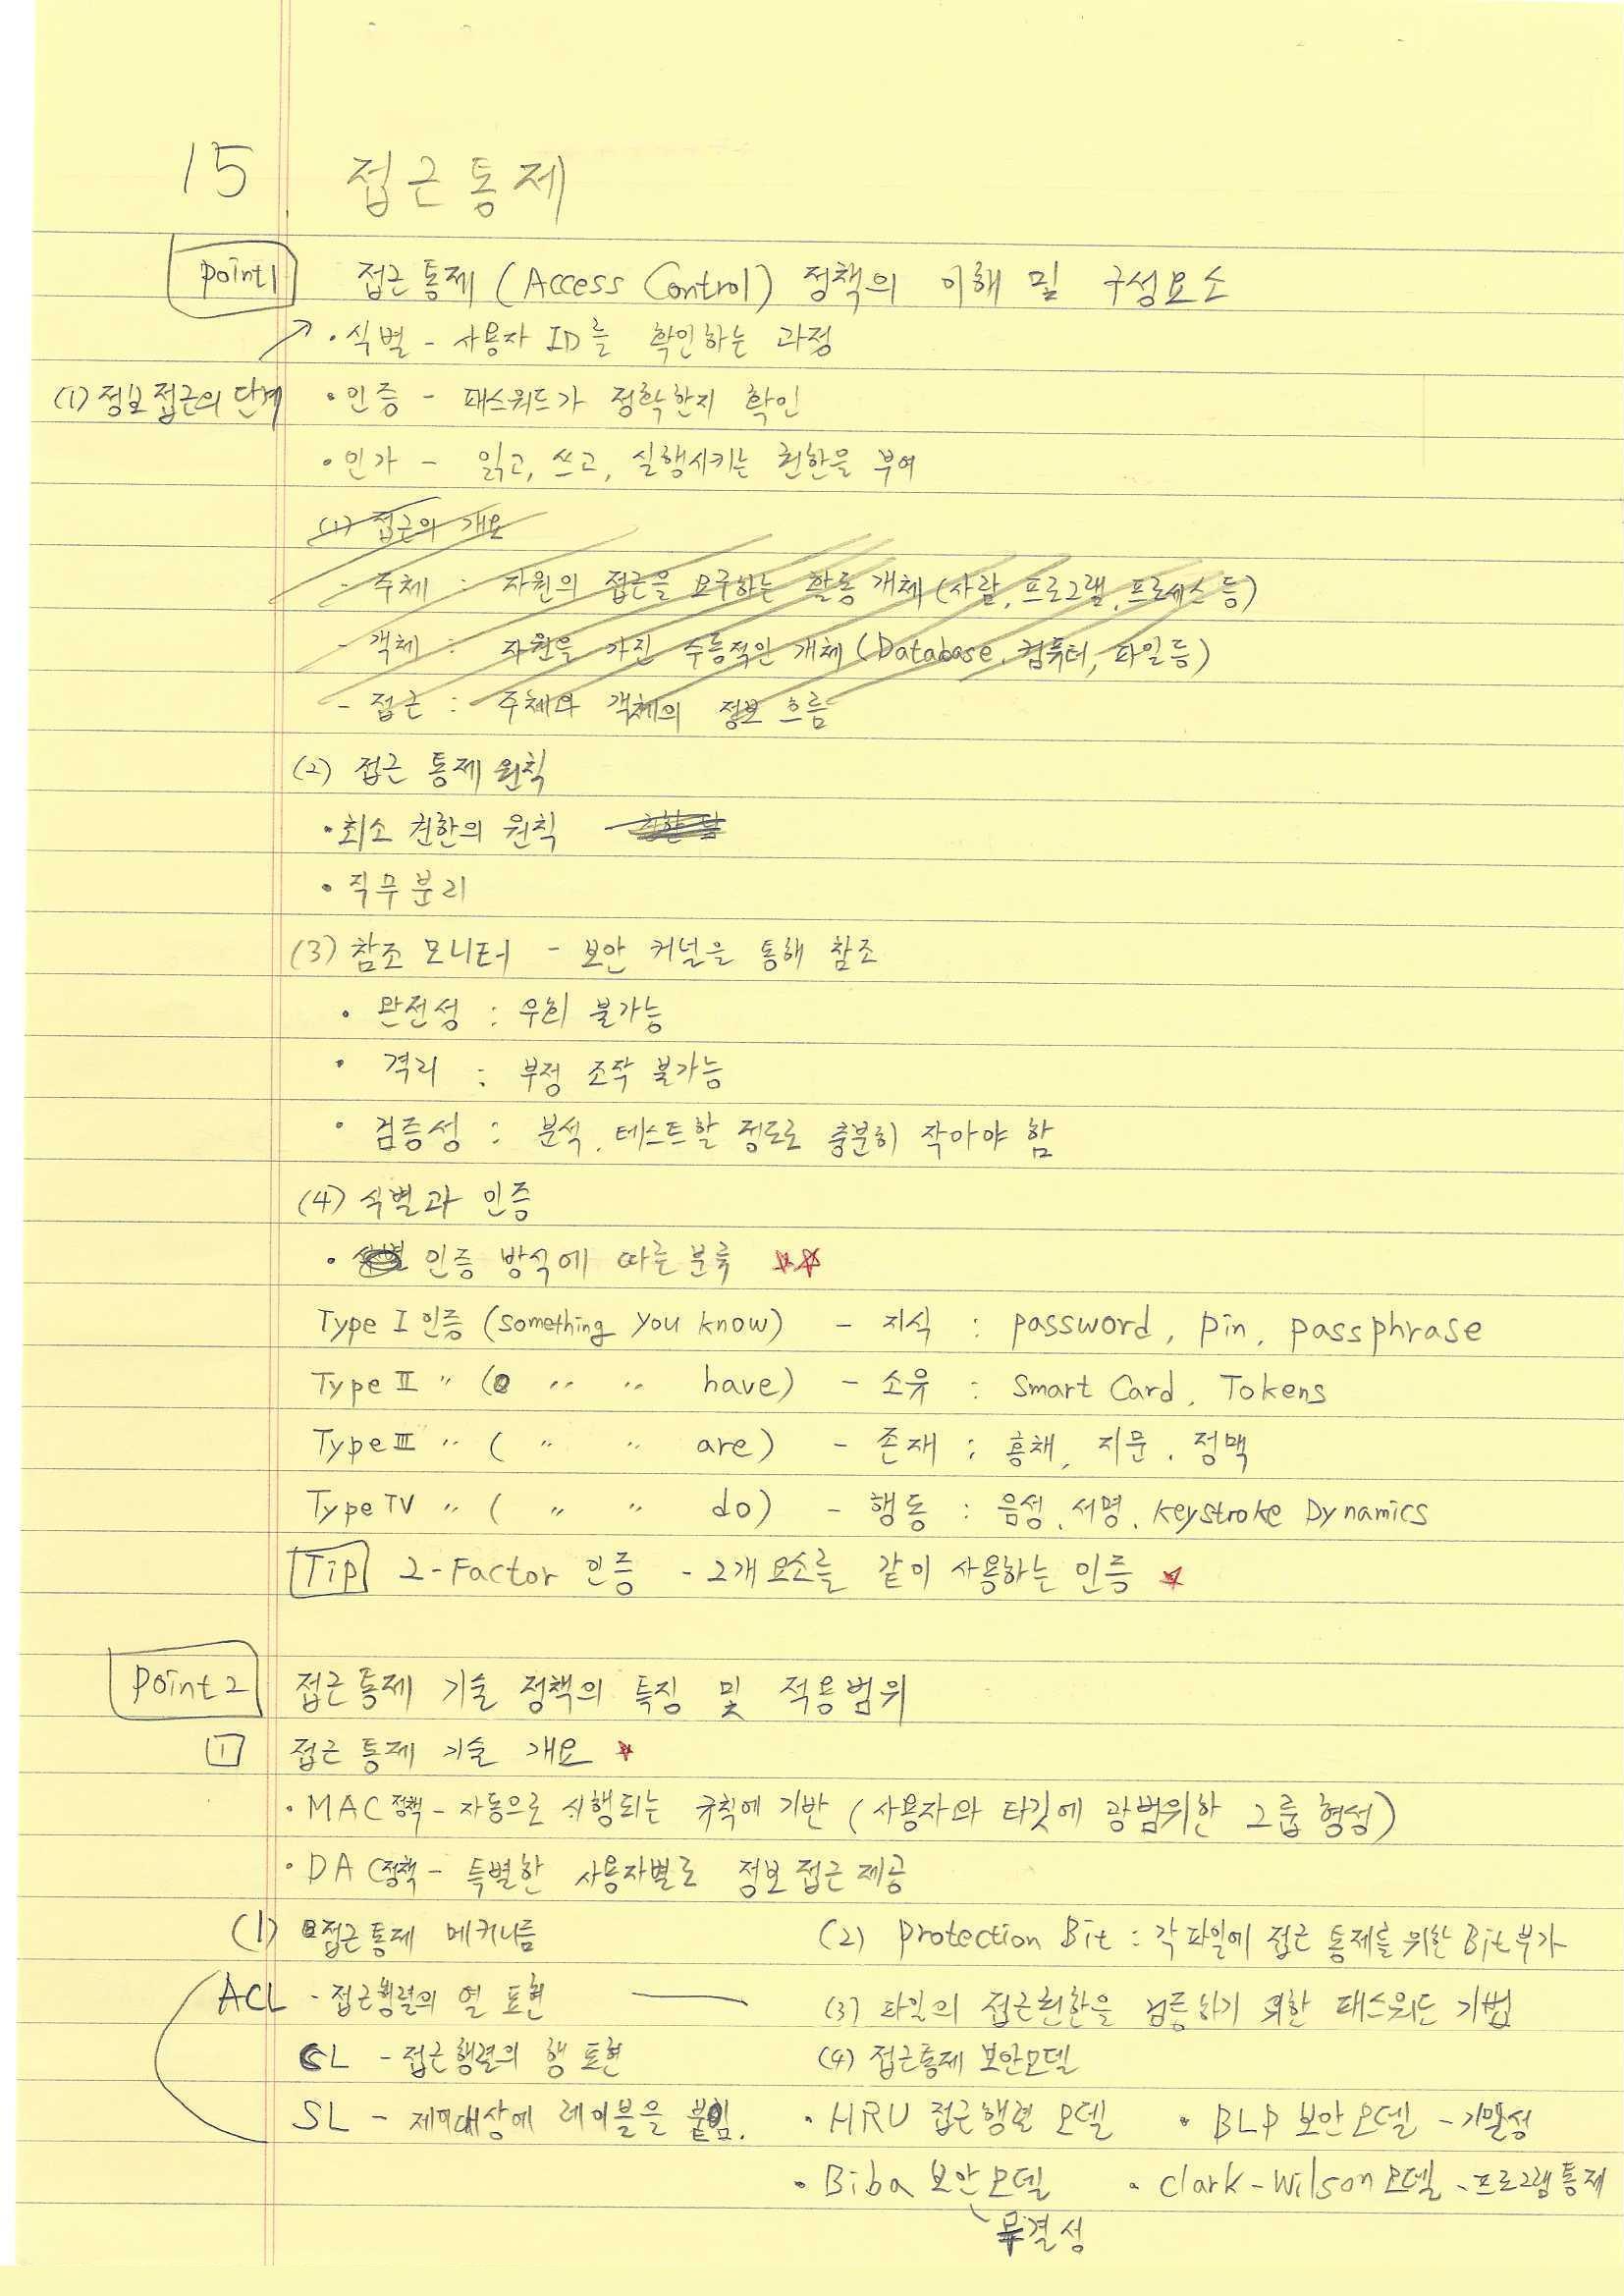 15 접근통제
point1 접근통제 (Access Control) 정책의 이해 및 구성요소
· 식별 - 사용자 ID를 확인하는 과정
(1) 정보 접근의 단계 · 인증 - 패스워드가 정확한지 확인
· 인가 - 읽고, 쓰고, 실행시키는 권한을 부여
(1) 접근의 개요
- 주체 : 자원의 접근을 요구하는 활동 개체 (사람, 프로그램, 프로세스 등)
- 객체 : 자원을 가진 수동적인 개체 (Database, 컴퓨터, 파일 등)
- 접근 : 주체와 객체의 정보 흐름
(2) 접근 통제 원칙
· 최소 권한의 원칙
· 직무 분리
(3) 참조 모니터 - 보안 커널을 통해 참조
· 완전성 : 우회 불가능
· 격리 : 부정 조작 불가능
· 검증성 : 분석, 테스트할 정도로 충분히 작아야 함
(4) 식별과 인증
· 인증 방식에 따른 분류 ☆☆
Type I 인증 (Something you know) - 지식 : password, pin, passphrase
Type II " ( " " have) - 소유 : Smart Card, Tokens
Type III " ( " " are) - 존재 : 홍채, 지문, 정맥
Type IV " ( " " do) - 행동 : 음성, 서명, Keystroke Dynamics
Tip 2-Factor 인증 - 2개 요소를 같이 사용하는 인증 ☆
point2 접근통제 기술 정책의 특징 및 적용범위
1 접근 통제 기술 개요 ☆
· MAC 정책 - 자동으로 시행되는 규칙에 기반 (사용자와 타깃에 광범위한 그룹 형성)
· DAC 정책 - 특별한 사용자별로 정보 접근 제공
(1) 접근통제 메커니즘
ACL - 접근행렬의 열 표현
CL - 접근행렬의 행 표현
SL - 제어대상에 레이블을 붙임.
(2) Protection Bit : 각 파일에 접근 통제를 위한 Bit 부가
(3) 파일의 접근권한을 검증하기 위한 패스워드 기법
(4) 접근통제 보안모델
· HRU 접근행렬 모델 · BLP 보안모델 - 기밀성
· Biba 보안모델 · Clark-Wilson 모델 - 프로그램 통제
무결성